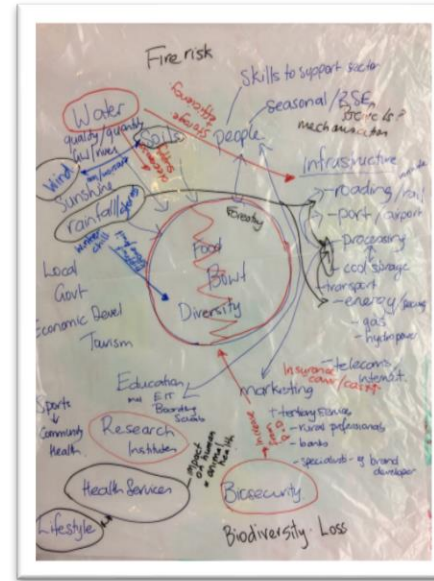 Fire risk
Skills to support sector
Water
quality/quantity
seasonal/RSE
people
mechanisation
Soils
Wind
Sunshine
rainfall
Infrastructure
- roading/rail
- port/airport
- processing
- cool storage
transport
- energy
- gas
- hydro power
- telecoms
Forestry
Food
Bowl
Diversity
Local
Govt
Economic Devel
Tourism
Education
EIT
Boarding
Schools
marketing
Insurance
cover/costs
+ tertiary services
- rural professionals
- banks
- specialists - eg brand
developer
Sports
Community
Health
Research
Institutes
Health Services
impact
on human
+ animal
health
Biosecurity
Lifestyle
Biodiversity Loss